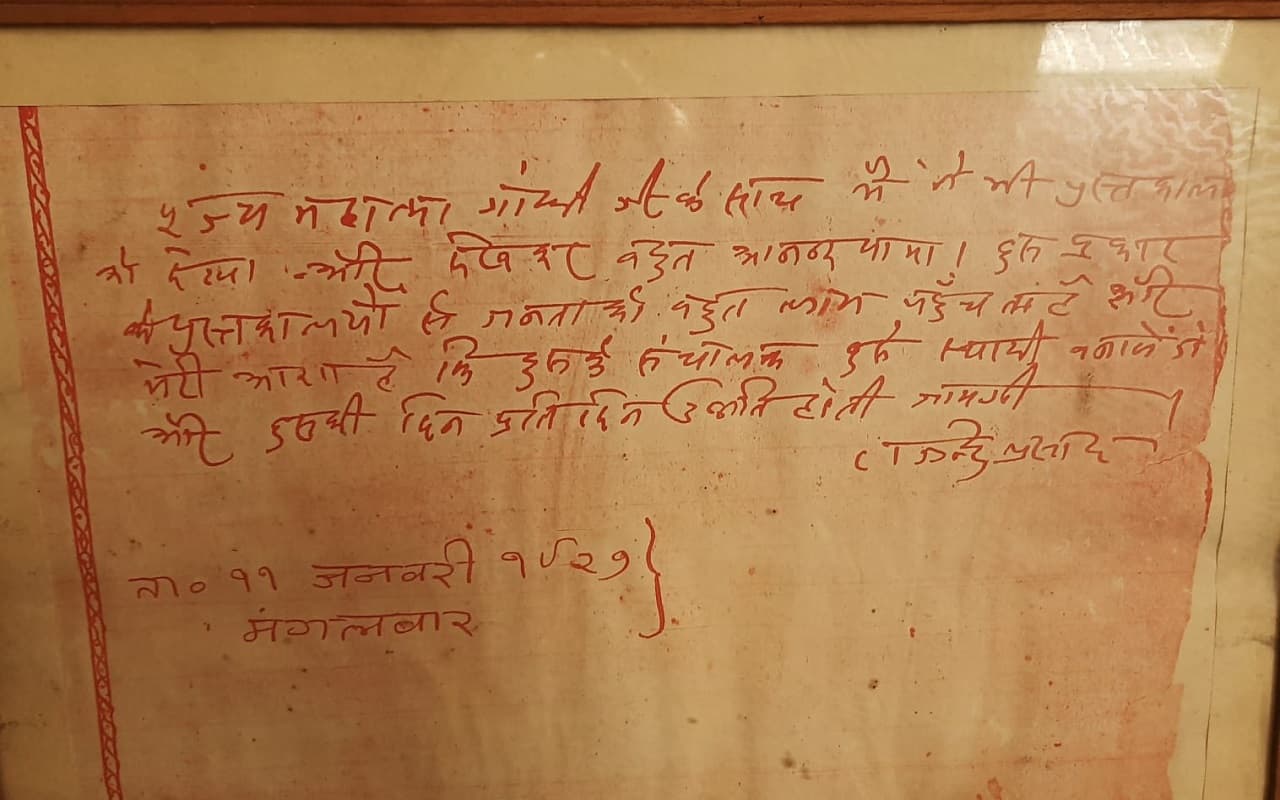 पूज्य महात्मा गांधी जी के साथ मैं ने भी पुस्तकालय
को देखा और देखकर बहुत आनन्द पाया। इस प्रकार
के पुस्तकालयों से जनता को बहुत लाभ पहुँच सकता है और
मेरी आशा है कि इसके संचालक इसे स्थायी बनावेंगे
और इसकी दिन प्रतिदिन उन्नति होती जायगी।
राजेन्द्र प्रसाद
ता० ११ जनवरी १९२७
मंगलवार